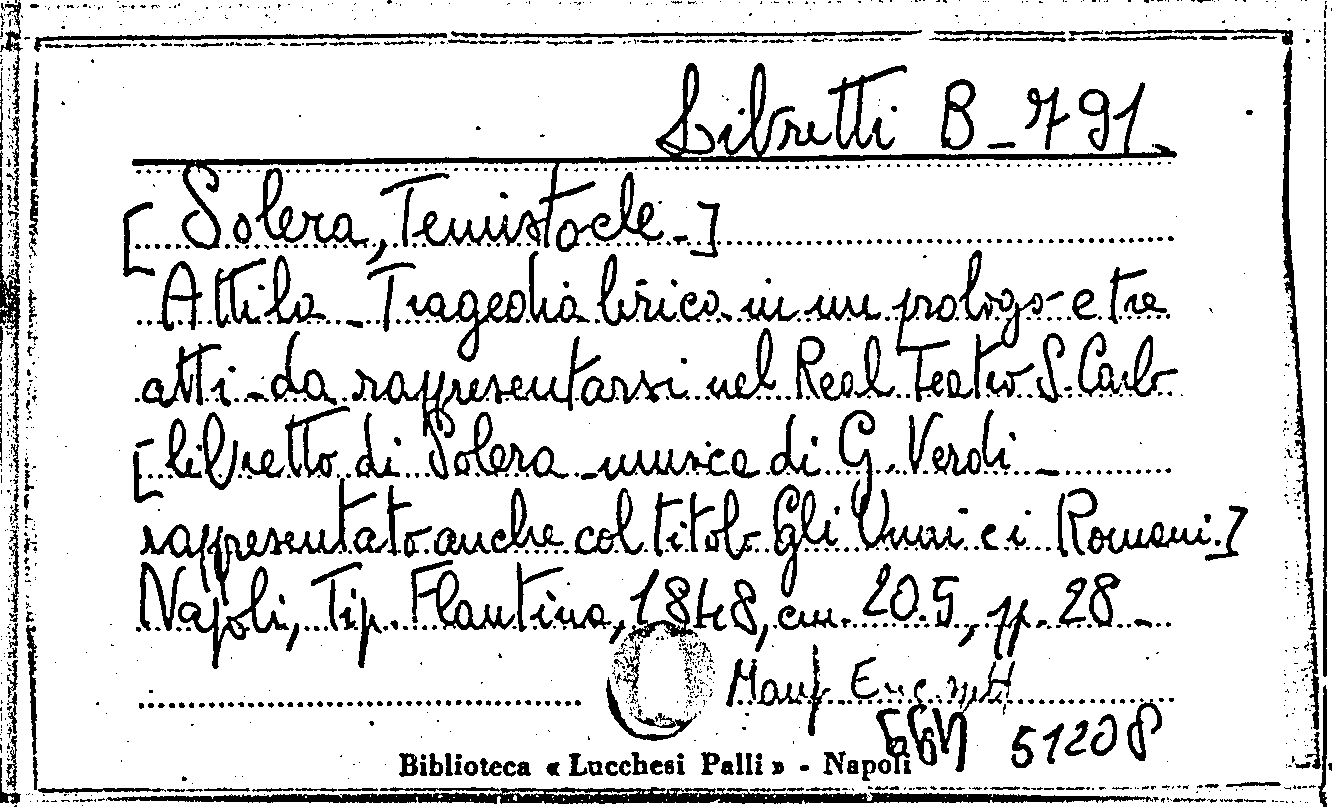 Libretti B-791.
[Solera, Temistocle.]
Attila - Tragedia lirica in un prologo e tre
atti - da rappresentarsi nel Real Teatro S. Carlo
[libretto di Solera - musica di G. Verdi -
rappresentato anche col titolo Gli Unni e i Romani.]
Napoli, Tip. Flautina, 1848, cm. 20.5, pp. 28 -
51208
Biblioteca « Lucchesi Palli » - Napoli